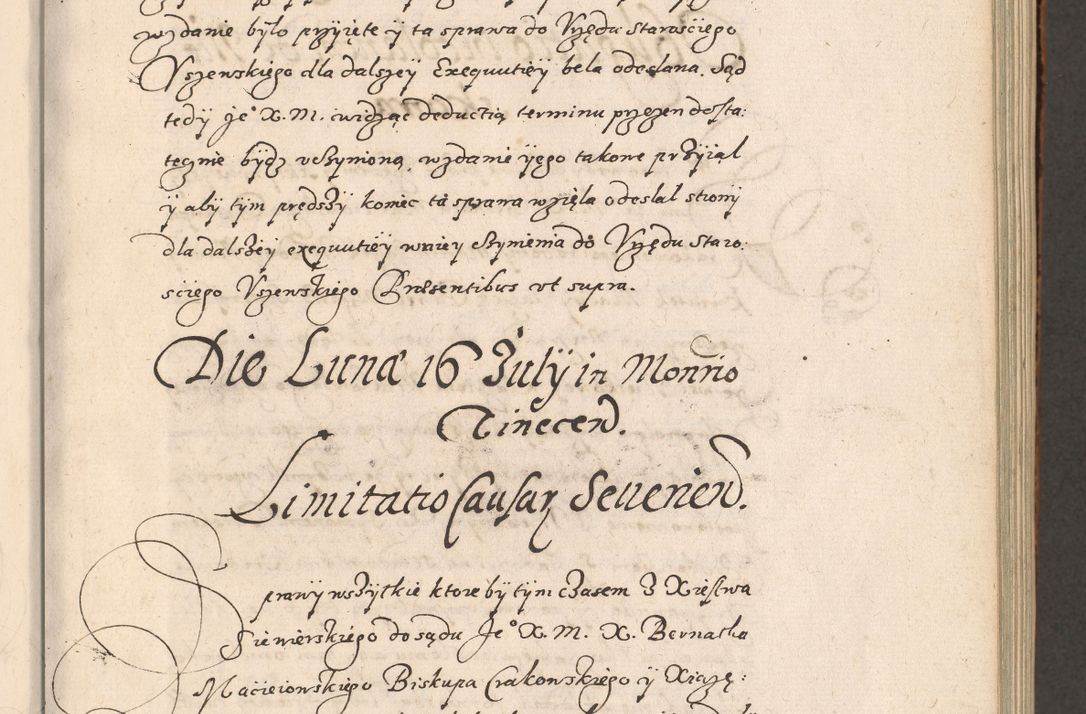 wzdanie było przyięte y ta sprawa do Vrzędu Starosciego
Vszewskiego dla dalszey Exequutiey bela odeslana. Sąd
tedy Jeo X. M. widząc deductią terminu przezen dosta:
tecznie bydz vczyniona, wzdanie yego takowe przyiął
y aby tym prędszy koniec ta sprawa wzięla odeslal strony
dla dalszey exequutiey wniey czynienia do Vrzędu Staro:
sciego Vszewskiego Præsentibus vt supra.
Die Lunæ 16 July in Monrio
Tinecen.
Limitatio Causar Severien.
Sprawy wszytkie ktore by tym czasem z Xięstwa
Siewierskiego do sądu Jeo X. M. X. Bernatha
Macieiowskiego Biskupa Crakowskiego y Xiązę: